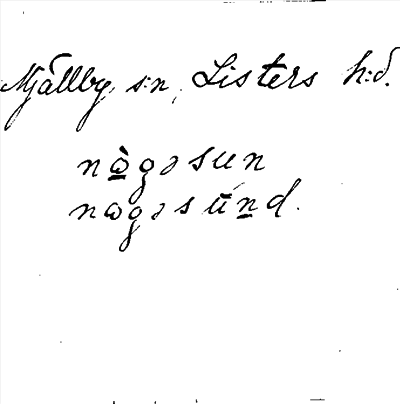 Mjällby s:n, Listers h:d.
nò̱gəsun
nɷgəsú̄ṉd.